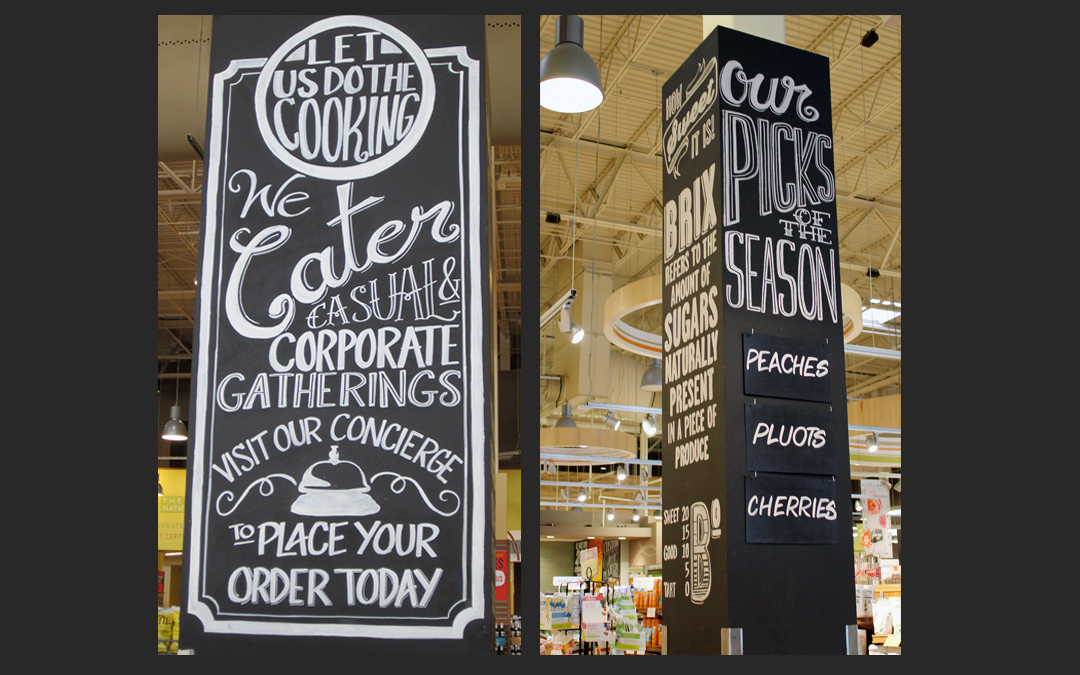 LET
US DO THE
COOKING
We
Cater
CASUAL &
CORPORATE
GATHERINGS
VISIT OUR CONCIERGE
TO PLACE YOUR
ORDER TODAY
HOW
Sweet
IT IS!
BRIX
REFERS TO THE
AMOUNT OF
SUGARS
NATURALLY
PRESENT
IN A PIECE OF
PRODUCE
SWEET 20
15
GOOD 10
5
TART 0
B°
our
PICKS
OF
THE
SEASON
PEACHES
PLUOTS
CHERRIES
THE
NATU